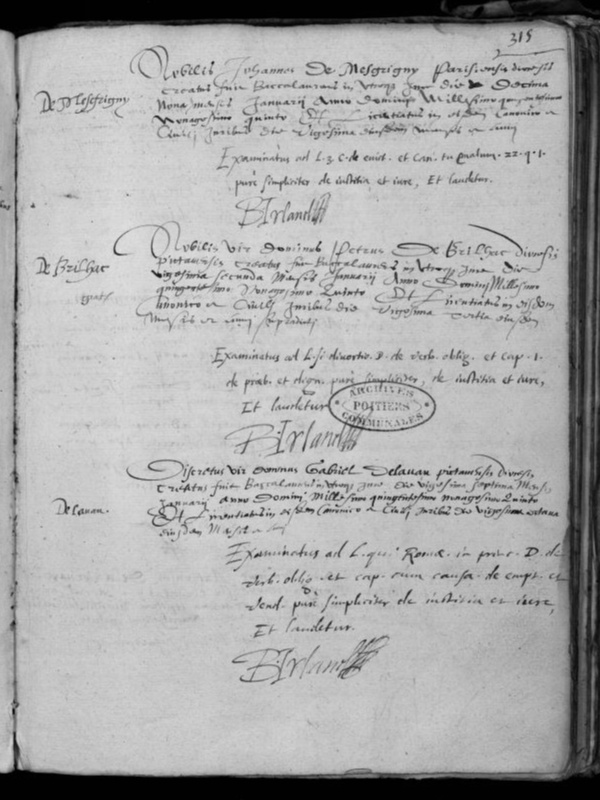 315
De Mesgrigny
Nobilis Johannes De Mesgrigny Parisiensis diocesis
creatus fuit Baccalaureus in utroque Jure die decima
nona mensis Januarii Anno Domini Millesimo quingentesimo
Nonagesimo quinto Et Licentiatus in eisdem Canonico et
Civili Juribus die vigesima eiusdem mensis et anni
Examinatus ad L. 3 C. de et Can. 22. q. 1.
purè simpliciter de iustitia et iure, Et laudetur.
B Irland
De Brilhac
gratis
Nobilis vir Dominus Petrus De Brilhac diocesis
pictavensis creatus fuit Baccalaureus in utroque Jure die
vigesima secunda Mensis Januarii Anno Domini Millesimo
quingentesimo Nonagesimo Quinto Et Licentiatus in eisdem
Canonico et Civili Juribus die vigesima tertia eiusdem
Mensis et anni
Examinatus ad L. si divortio. D. de verb. oblig. et cap. 1.
de præb. et dign. purè simpliciter, de iustitia et iure,
Et laudetur
ARCHIVES
POITIERS
COMMUNALES
B Irland
Delauau.
Discretus vir dominus Gabriel Delauau pictavensis diocesis
creatus fuit Baccalaureus in utroque Jure die vigesima septima Mensis
Januarii anno Domini Millesimo quingentesimo nonagesimo Quinto
Et Licentiatus in eisdem Canonico et Civili Juribus die vigesima octava
eiusdem Mensis et
Examinatus ad L. qui Romæ. in princ. D. de
verb. oblig. et cap. cum causa. de empt. et
vend. purè simpliciter de iustitia et iure,
Et laudetur.
B. Irland